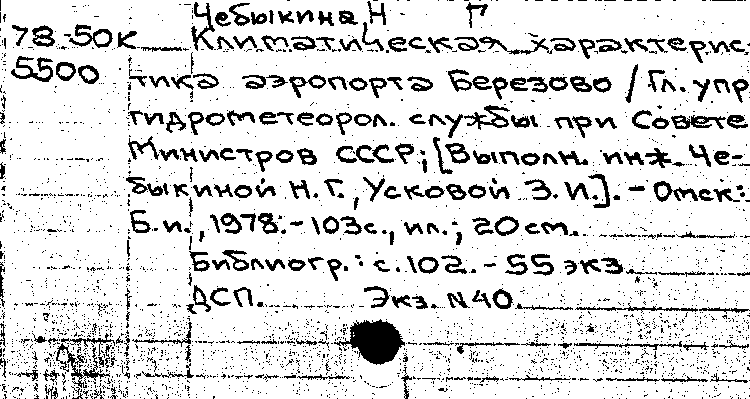 Чебыкина, Н Г
78-50к Климатическая характерис
5500 тика аэропорта Березово / Гл. упр
гидрометеорол. службы при Совете
Министров СССР; [Выполн. инж. Че-
быкиной Н. Г., Усковой З. И.]. - Омск:
Б. и., 1978. - 103с., ил.; 20 см.
Библиогр.: с. 102. - 55 экз.
ДСП. Экз. N 40.